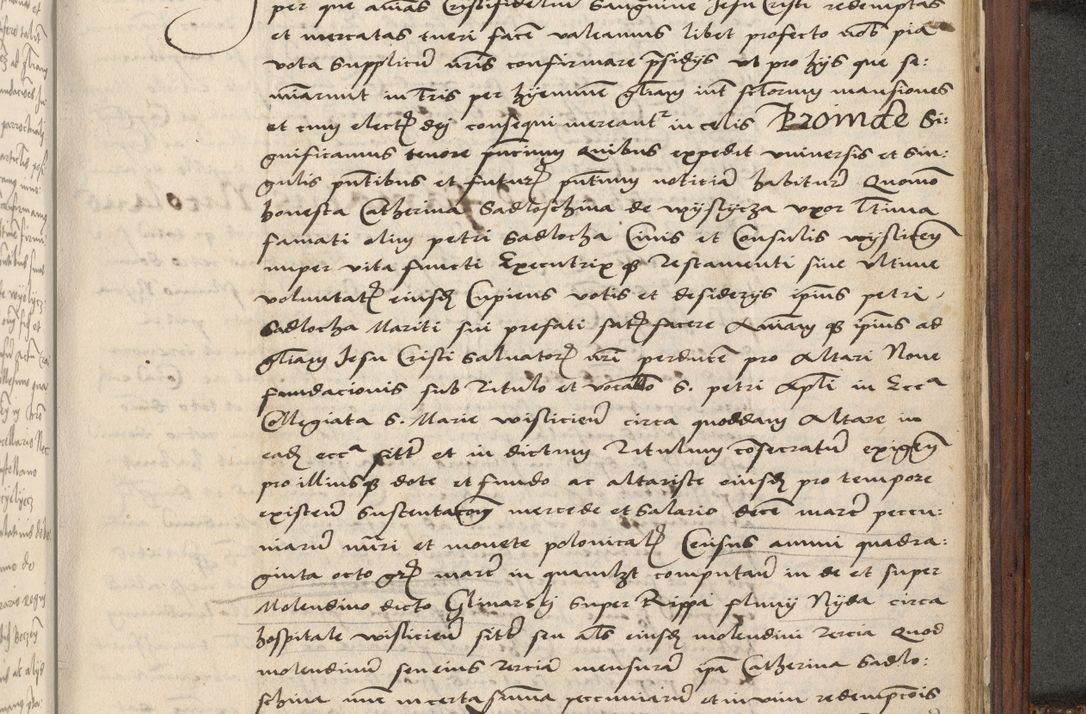 per que animas Cristifidelium Sanguine Jesu Cristi redemptas
et mercatas tueri facere valeamus libet profecto nobis pia
vota Supplicum nostris confirmare presidys ut pro hys que se:
minarunt in terris per hyemem gloriam inter sanctorum mansiones
et cum electis dei consequi mereantur in celis Proinde Si:
gnificamus tenore presencium Quibus expedit vniversis et Sin:
gulis presentibus et futuris presentium noticiam habituris Quomodo
honesta Catherina Sadloschina de wyslycza vxor legitima
famati olim petri Sadlocha Ciuis et Consulis wyslicen
nuper vita functi Executrix que Testamenti siue vltime
voluntatis eiusdem Cupiens votis et desiderys ipsius petri
Sadlocha Mariti sui prefati satisfacere Animam que ipsius ad
gloriam Jesu Cristi Saluatoris nostri perducere pro Altari Noue
fundacionis sub Titulo et vocabulo S. petri Apostoli in Ecclesia
Collegiata S. Marie wislicien circa quoddam Altare in
eadem ecclesia situm et in dictum Titulum consecratum exigen
pro illius que dote et fundo ac altariste eiusdem pro tempore
existen Sustentacione mercede et Salario decem marcarum peccu:
niarum numeri et monete polonicalis Census annui quadra:
ginta octo grossis marcam in quamlibet computan in de et super
Molendino dicto Glinarski Super Rippa fluuy Nyda circa
hospitale wislicien sitto seu alias eiusdem molendini tercia Quod
molendinum seu eius terciam mensuram ipsa Catherina Sadlo:
schina nunc in certa summa pecuniarum et in vim redempcionis